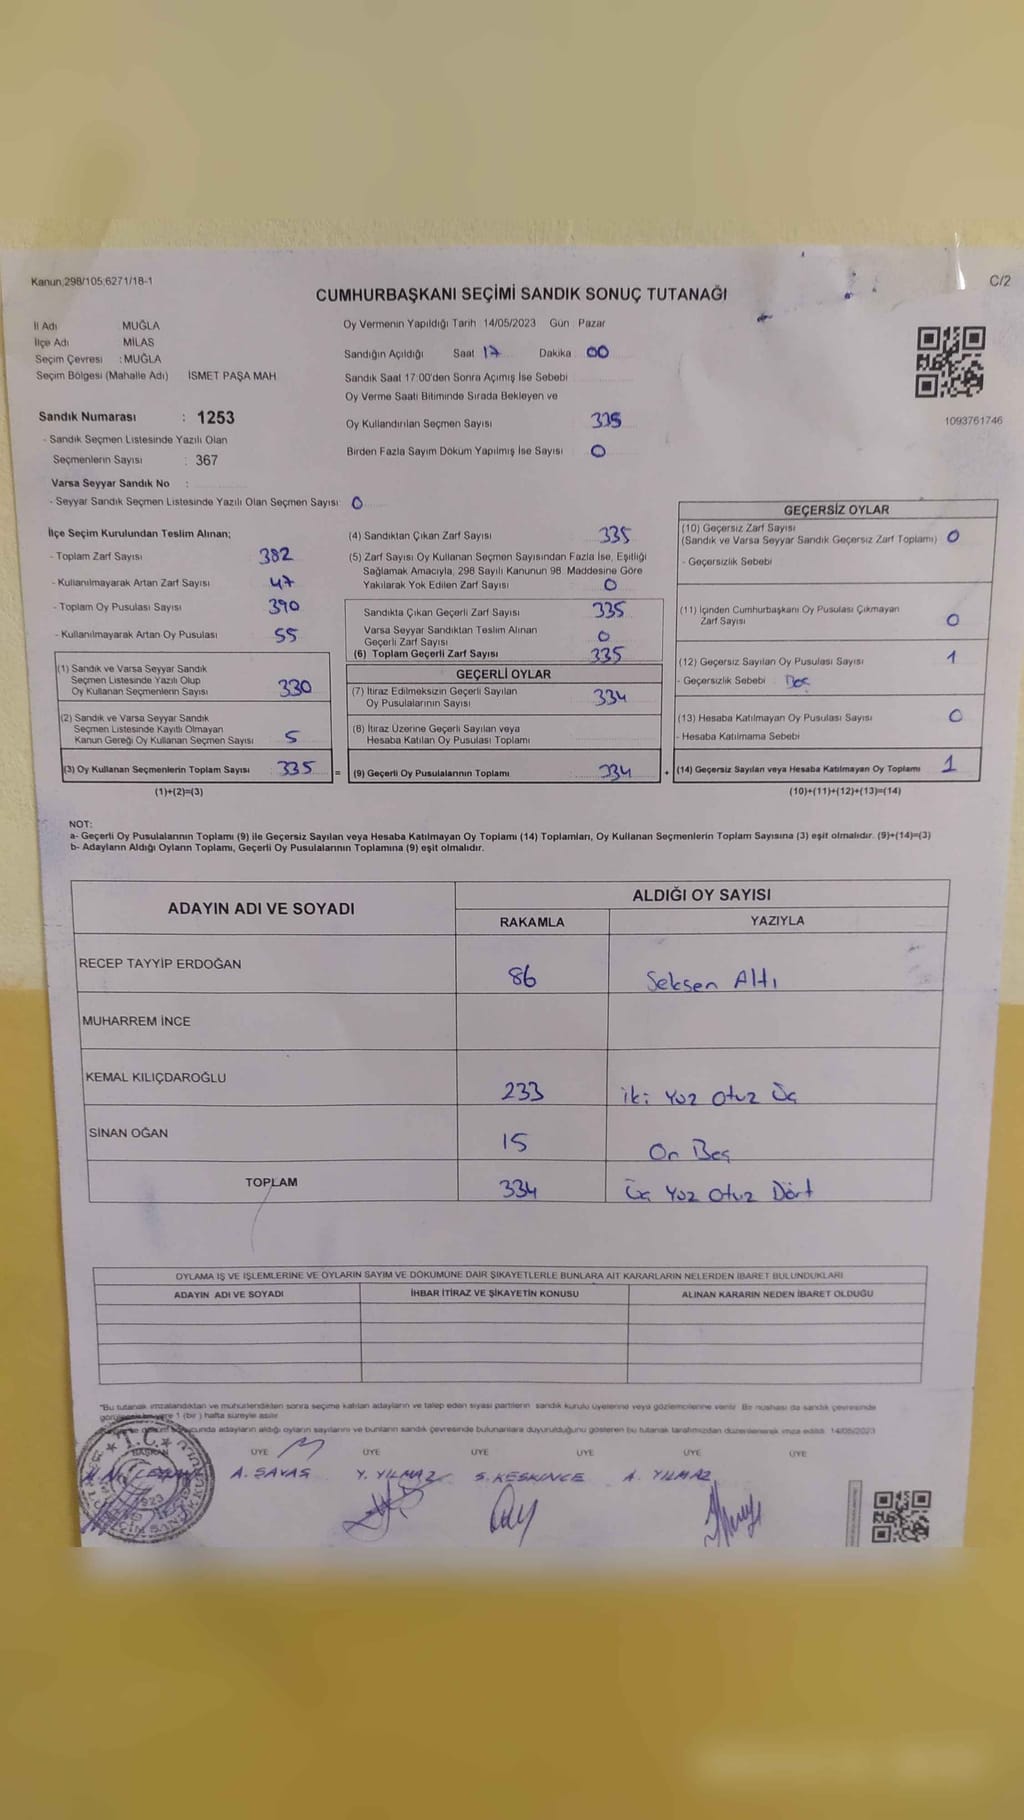 Kanun;298/105;6271/18-1
C/2
CUMHURBAŞKANI SEÇİMİ SANDIK SONUÇ TUTANAĞI
İl Adı : MUĞLA
İlçe Adı : MİLAS
Seçim Çevresi : MUĞLA
Seçim Bölgesi (Mahalle Adı) İSMET PAŞA MAH
Sandık Numarası : 1253
- Sandık Seçmen Listesinde Yazılı Olan
Seçmenlerin Sayısı : 367
Varsa Seyyar Sandık No :
- Seyyar Sandık Seçmen Listesinde Yazılı Olan Seçmen Sayısı: 0
Oy Vermenin Yapıldığı Tarih 14/05/2023 Gün : Pazar
Sandığın Açıldığı Saat 17 Dakika 00
Sandık Saat 17:00'den Sonra Açımış İse Sebebi
Oy Verme Saati Bitiminde Sırada Bekleyen ve
Oy Kullandırılan Seçmen Sayısı 335
Birden Fazla Sayım Döküm Yapılmış İse Sayısı 0
1093761746
İlçe Seçim Kurulundan Teslim Alınan;
- Toplam Zarf Sayısı 382
- Kullanılmayarak Artan Zarf Sayısı 47
- Toplam Oy Pusulası Sayısı 390
- Kullanılmayarak Artan Oy Pusulası 55
(1) Sandık ve Varsa Seyyar Sandık
Seçmen Listesinde Yazılı Olup
Oy Kullanan Seçmenlerin Sayısı 330
(2) Sandık ve Varsa Seyyar Sandık
Seçmen Listesinde Kayıtlı Olmayan
Kanun Gereği Oy Kullanan Seçmen Sayısı 5
(3) Oy Kullanan Seçmenlerin Toplam Sayısı 335
(1)+(2)=(3)
(4) Sandıktan Çıkan Zarf Sayısı 335
(5) Zarf Sayısı Oy Kullanan Seçmen Sayısından Fazla İse, Eşitliği
Sağlamak Amacıyla, 298 Sayılı Kanunun 98. Maddesine Göre
Yakılarak Yok Edilen Zarf Sayısı 0
Sandıkta Çıkan Geçerli Zarf Sayısı 335
Varsa Seyyar Sandıktan Teslim Alınan
Geçerli Zarf Sayısı 0
(6) Toplam Geçerli Zarf Sayısı 335
GEÇERLİ OYLAR
(7) İtiraz Edilmeksizin Geçerli Sayılan
Oy Pusulalarının Sayısı 334
(8) İtiraz Üzerine Geçerli Sayılan veya
Hesaba Katılan Oy Pusulası Toplamı
= (9) Geçerli Oy Pusulalarının Toplamı 334
GEÇERSİZ OYLAR
(10) Geçersiz Zarf Sayısı
(Sandık ve Varsa Seyyar Sandık Geçersiz Zarf Toplamı) 0
- Geçersizlik Sebebi
(11) İçinden Cumhurbaşkanı Oy Pusulası Çıkmayan
Zarf Sayısı 0
(12) Geçersiz Sayılan Oy Pusulası Sayısı 1
- Geçersizlik Sebebi
(13) Hesaba Katılmayan Oy Pusulası Sayısı 0
- Hesaba Katılmama Sebebi
+ (14) Geçersiz Sayılan veya Hesaba Katılmayan Oy Toplamı 1
(10)+(11)+(12)+(13)=(14)
NOT:
a- Geçerli Oy Pusulalarının Toplamı (9) ile Geçersiz Sayılan veya Hesaba Katılmayan Oy Toplamı (14) Toplamları, Oy Kullanan Seçmenlerin Toplam Sayısına (3) eşit olmalıdır. (9)+(14)=(3)
b- Adayların Aldığı Oyların Toplamı, Geçerli Oy Pusulalarının Toplamına (9) eşit olmalıdır.
ADAYIN ADI VE SOYADI ALDIĞI OY SAYISI
RAKAMLA YAZIYLA
RECEP TAYYİP ERDOĞAN 86 Seksen Altı
MUHARREM İNCE
KEMAL KILIÇDAROĞLU 233 iki Yüz Otuz Üç
SİNAN OĞAN 15 On Beş
TOPLAM 334 Üç Yüz Otuz Dört
OYLAMA İŞ VE İŞLEMLERİNE VE OYLARIN SAYIM VE DÖKÜMÜNE DAİR ŞİKAYETLERLE BUNLARA AİT KARARLARIN NELERDEN İBARET BULUNDUKLARI
ADAYIN ADI VE SOYADI İHBAR İTİRAZ VE ŞİKAYETİN KONUSU ALINAN KARARIN NEDEN İBARET OLDUĞU
"Bu tutanak imzalandıktan ve mühürlendikten sonra seçime katılan adayların ve talep eden siyasi partilerin sandık kurulu üyelerine veya gözlemcilerine verilir. Bir nüshası da sandık çevresinde
1 (bir) hafta süreyle asılır.
adayların aldığı oyların sayılarını ve bunların sandık çevresinde bulunanlara duyurulduğunu gösteren bu tutanak tarafımızdan düzenlenerek imza edildi. 14/05/2023
BAŞKAN ÜYE ÜYE ÜYE ÜYE ÜYE ÜYE
A. SAVAŞ Y. YILMAZ S. KESKİNCE A. YILMAZ
T.C.